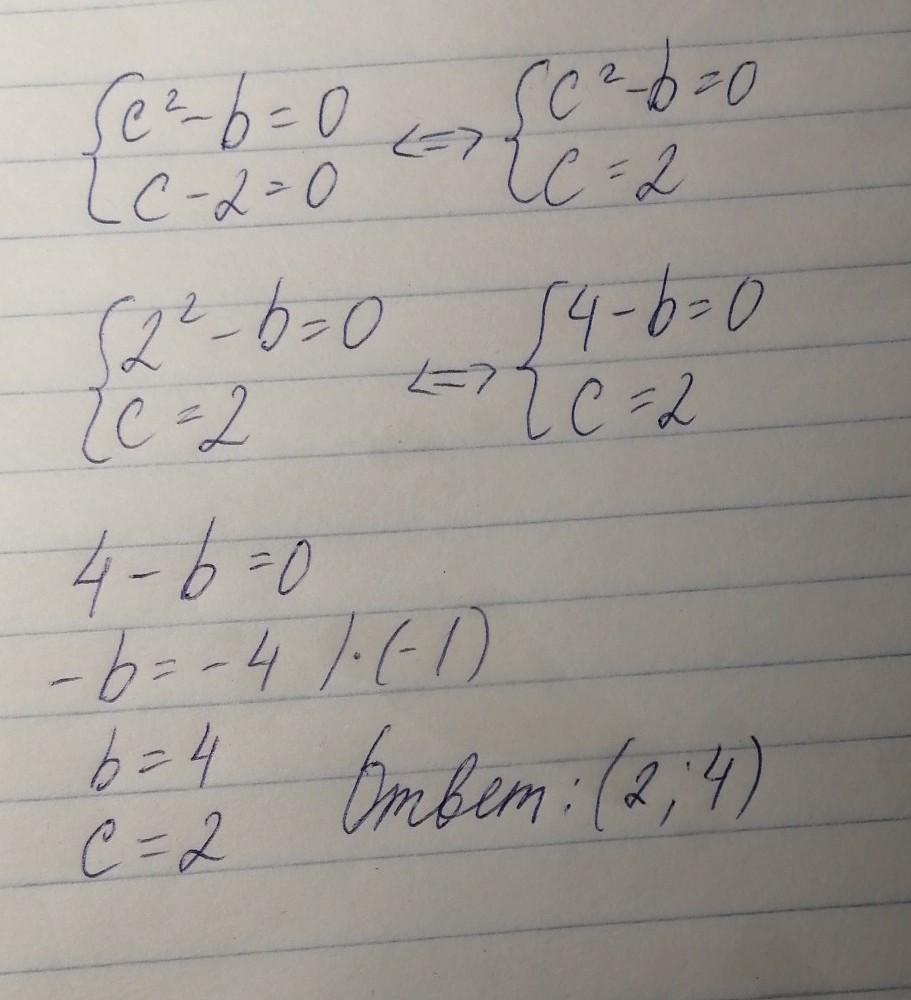 {c² - b = 0 <=> {c² - b = 0
{c - 2 = 0 {c = 2
{2² - b = 0 <=> {4 - b = 0
{c = 2 {c = 2
4 - b = 0
-b = -4 /·(-1)
b = 4
c = 2 Ответ: (2; 4)